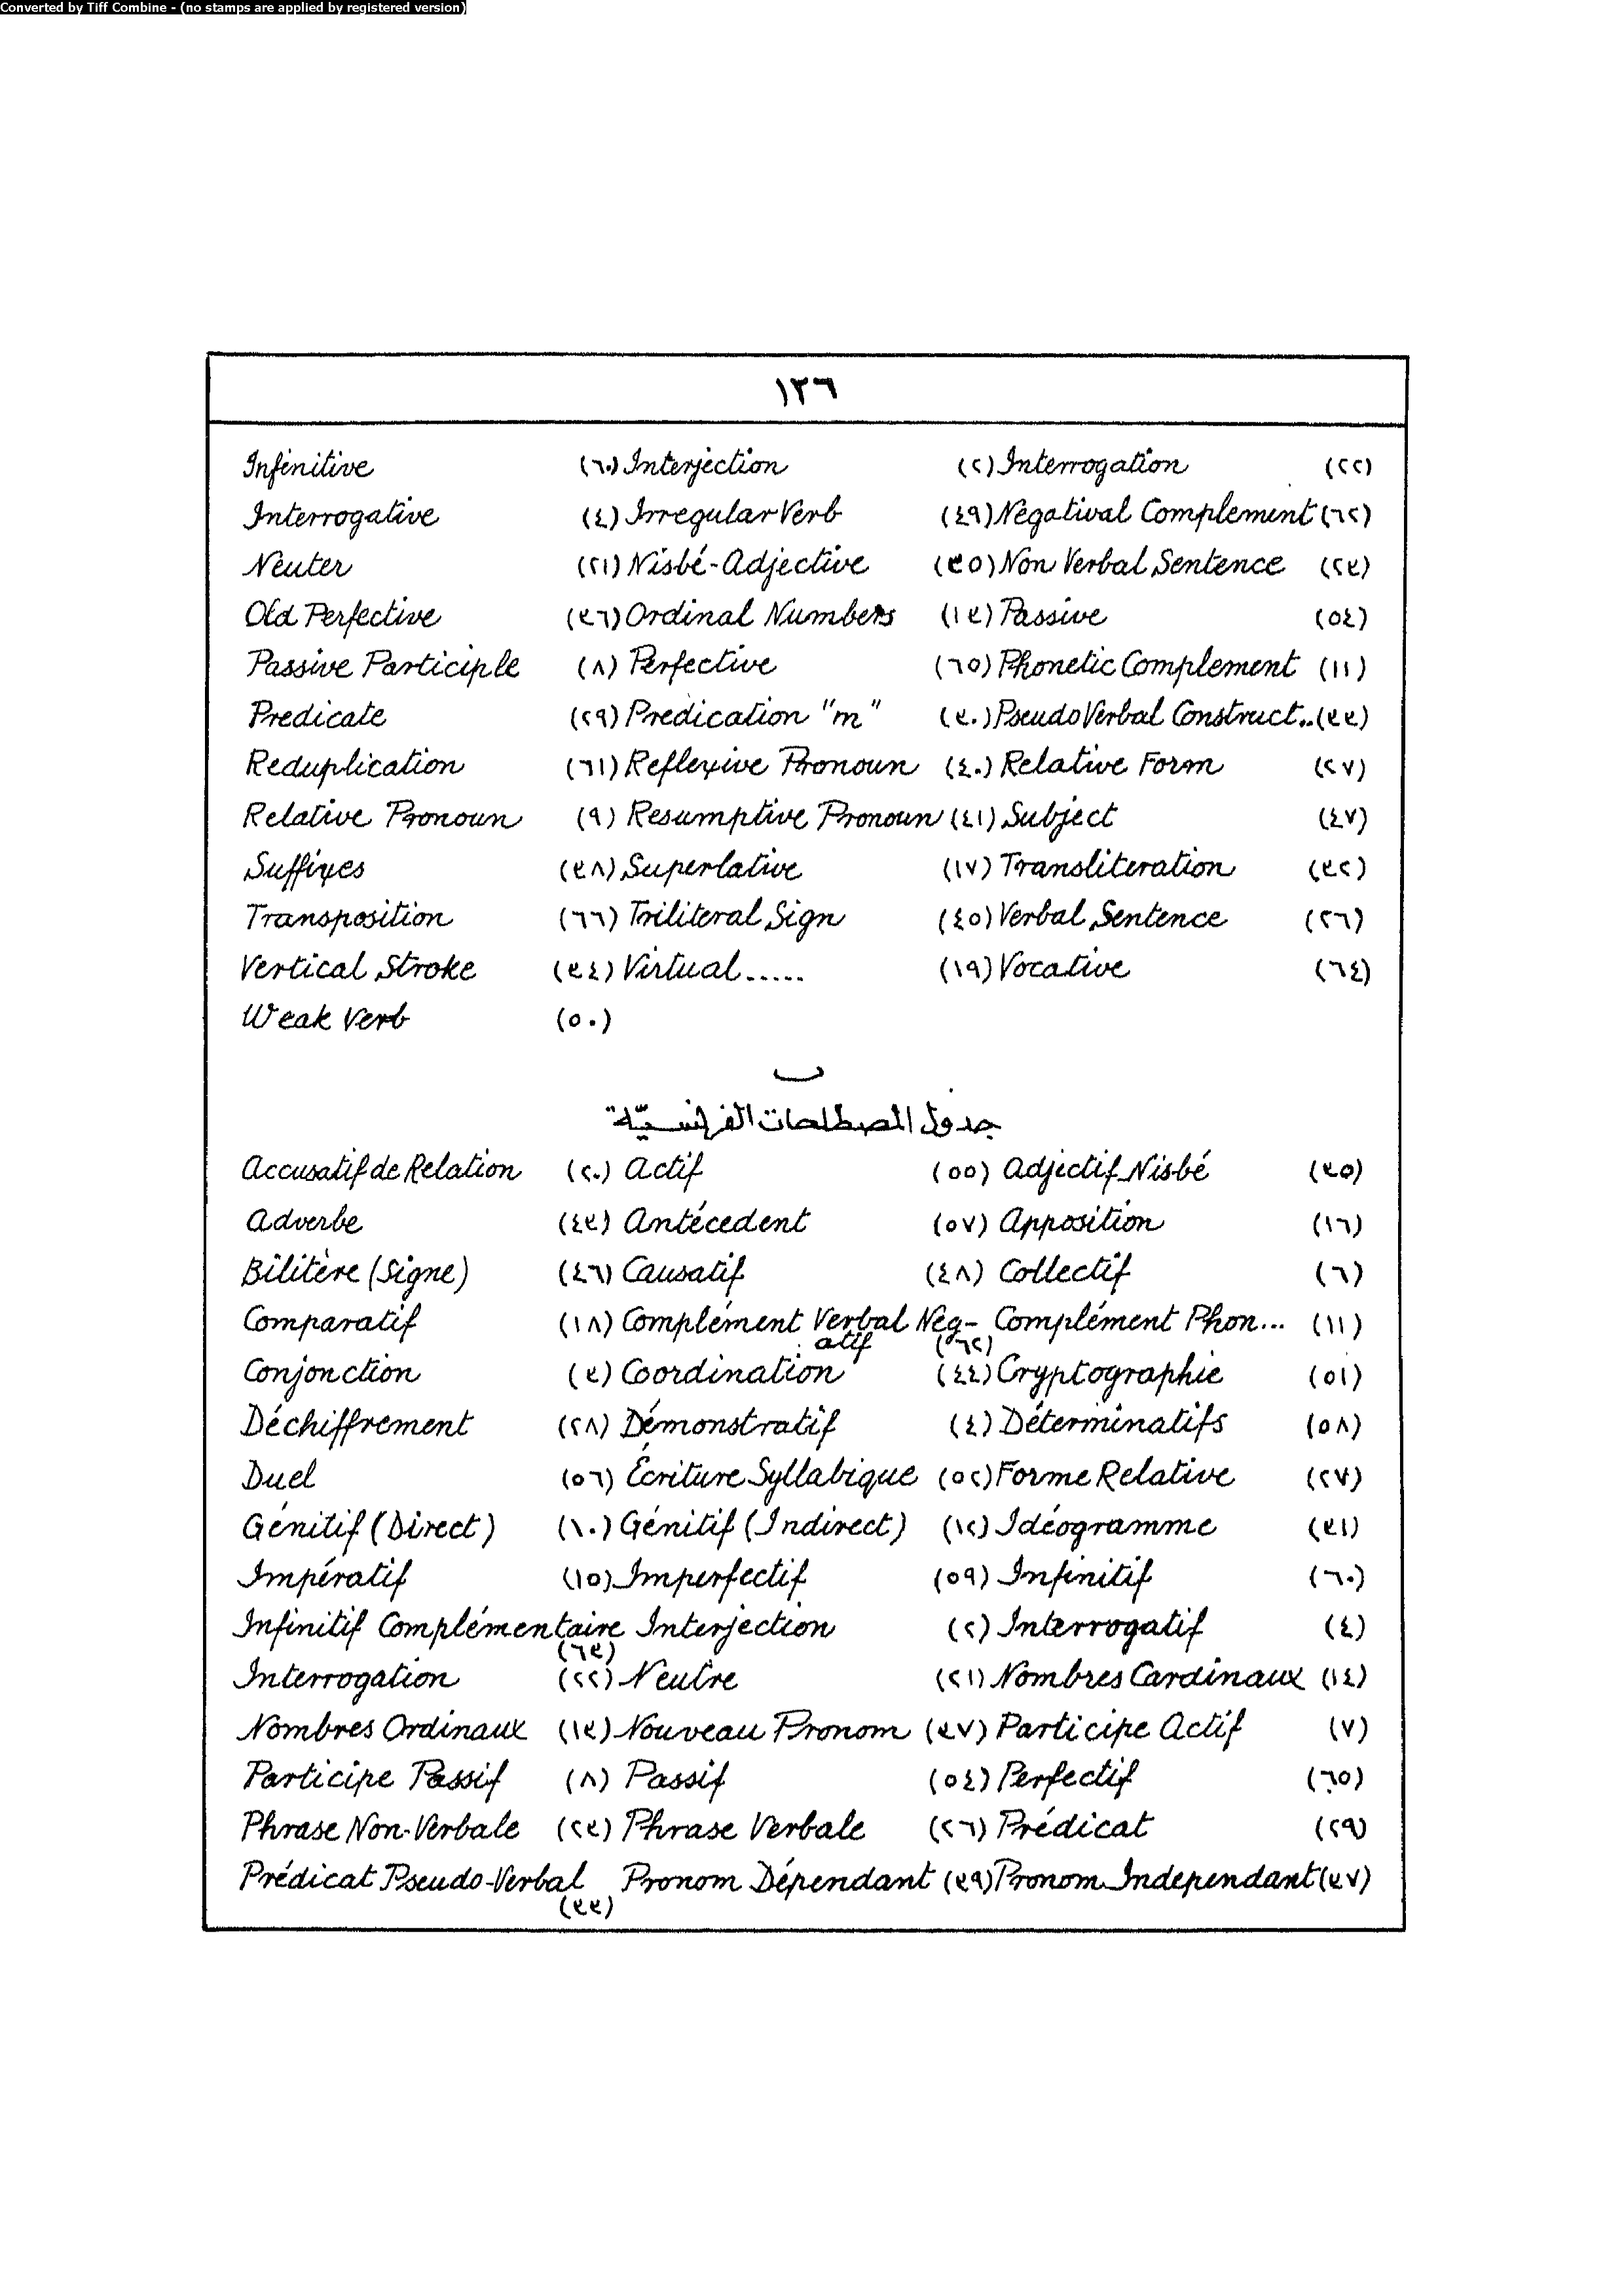 Converted by Tiff Combine - (no stamps are applied by registered version)
١٢٦
Infinitive (٦٠) Interjection (٢) Interrogation (٢٢)
Interrogative (٤) Irregular Verb (٤٩) Negatival Complement (٦٢)
Neuter (٢١) Nisbé-Adjective (٣٥) Non Verbal Sentence (٢٣)
Old Perfective (٣٦) Ordinal Numbers (١٣) Passive (٥٤)
Passive Participle (٨) Perfective (٦٥) Phonetic Complement (١١)
Predicate (٢٩) Predication "m" (٣٠) Pseudo Verbal Construct.. (٣٣)
Reduplication (٦١) Reflexive Pronoun (٤٠) Relative Form (٢٧)
Relative Pronoun (٩) Resumptive Pronoun (٤١) Subject (٤٧)
Suffixes (٣٨) Superlative (١٧) Transliteration (٣٢)
Transposition (٦٦) Triliteral Sign (٤٥) Verbal Sentence (٢٦)
Vertical Stroke (٣٤) Virtual..... (١٩) Vocative (٦٤)
Weak Verb (٥٠)
ب
جدول المصطلحات الفرنسيّة
Accusatif de Relation (٢٠) Actif (٥٥) Adjectif Nisbé (٣٥)
Adverbe (٤٣) Antécedent (٥٧) Apposition (١٦)
Bilitère (Signe) (٤٦) Causatif (٤٨) Collectif (٦)
Comparatif (١٨) Complément Verbal Neg- Complément Phon... (١١)
atif (٦٢)
Conjonction (٣) Coordination (٤٤) Cryptographie (٥١)
Déchiffrement (٢٨) Démonstratif (٤) Déterminatifs (٥٨)
Duel (٥٦) Écriture Syllabique (٥٢) Forme Relative (٢٧)
Génitif (Direct) (١٠) Génitif (Indirect) (١٢) Idéogramme (٣١)
Impératif (١٥) Imperfectif (٥٩) Infinitif (٦٠)
Infinitif Complémentaire Interjection (٢) Interrogatif (٤)
(٦٣)
Interrogation (٢٢) Neutre (٢١) Nombres Cardinaux (١٤)
Nombres Ordinaux (١٣) Nouveau Pronom (٣٧) Participe Actif (٧)
Participe Passif (٨) Passif (٥٤) Perfectif (٦٥)
Phrase Non-Verbale (٢٣) Phrase Verbale (٢٦) Prédicat (٢٩)
Prédicat Pseudo-Verbal Pronom Dépendant (٣٩) Pronom Independant (٣٧)
(٣٣)